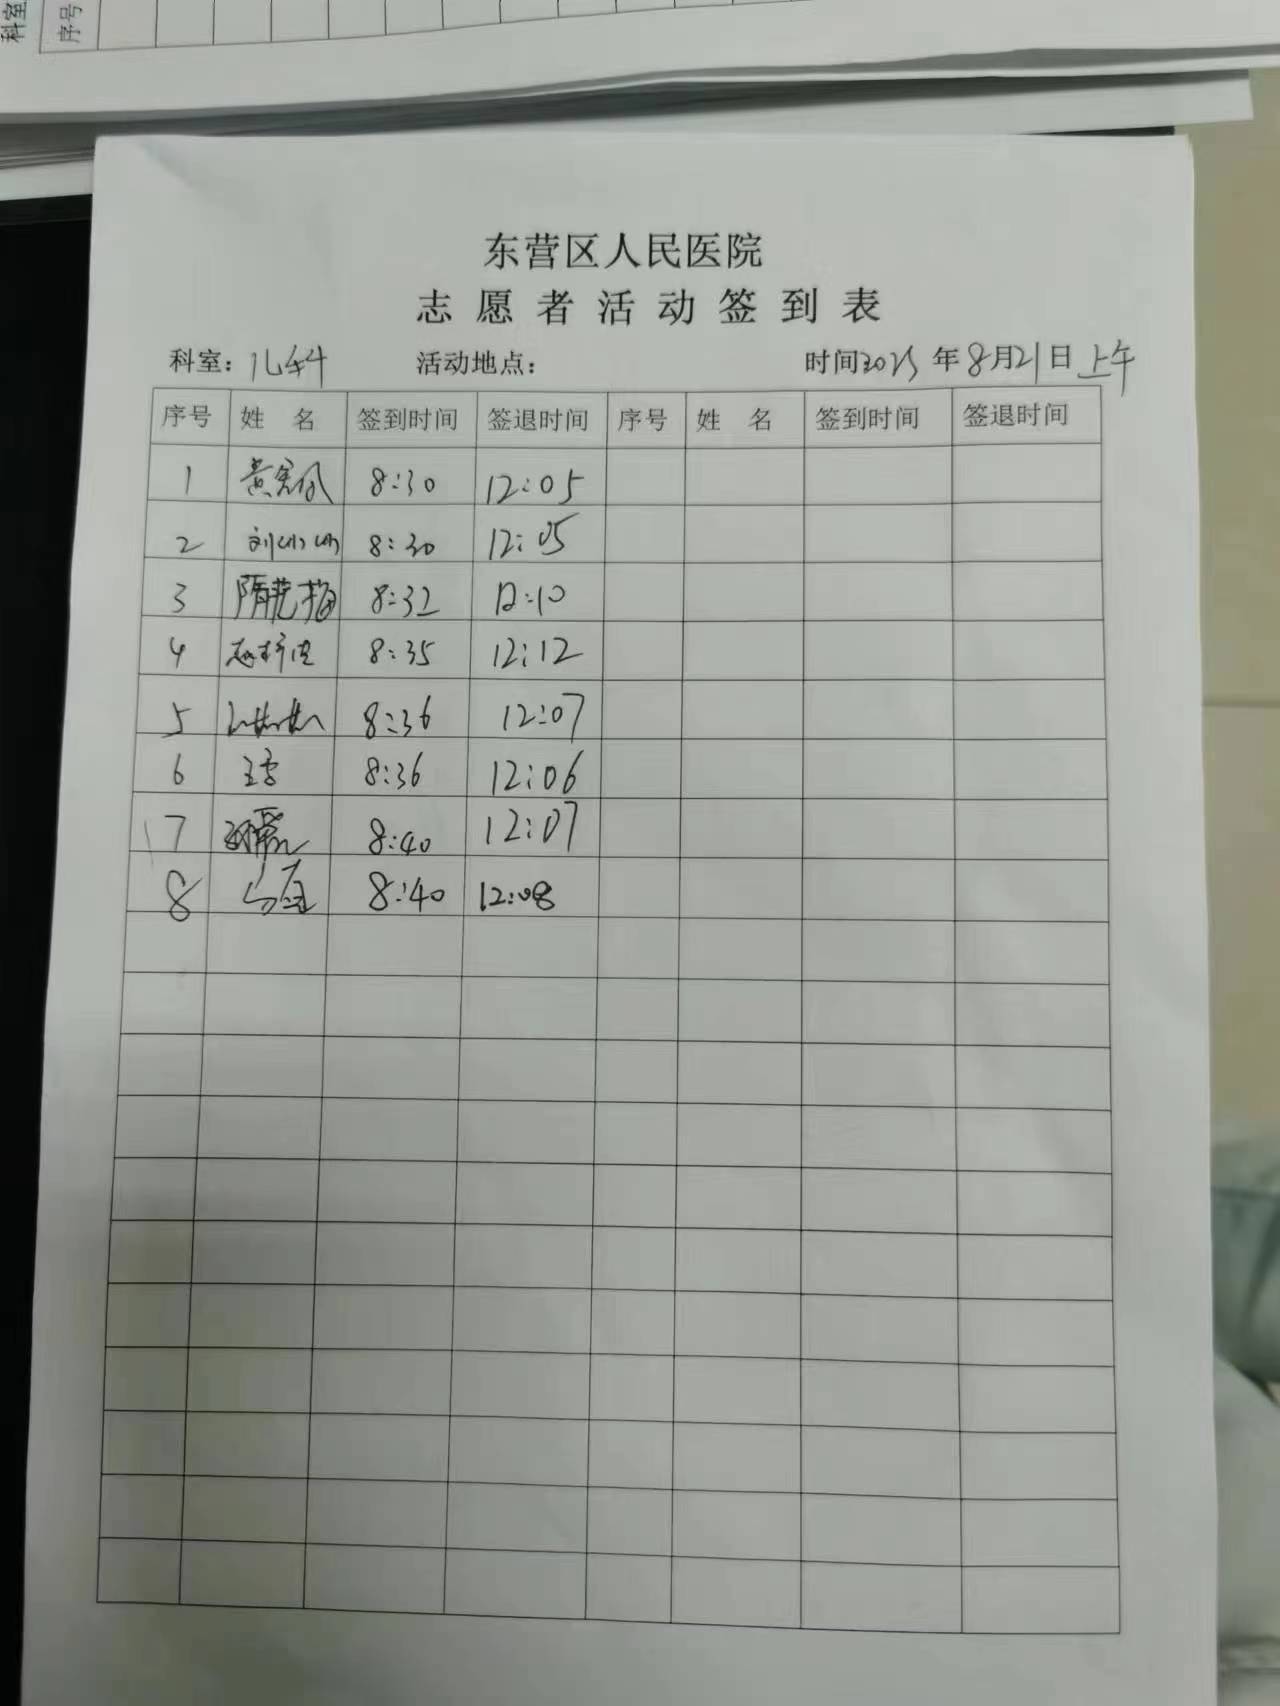 科室
序号
东营区人民医院
志愿者活动签到表
科室：儿科 活动地点： 时间2025年8月21日上午
序号 姓 名 签到时间 签退时间 序号 姓 名 签到时间 签退时间
1 8:30 12:05
2 8:30 12:05
3 8:32 12:10
4 8:35 12:12
5 8:36 12:07
6 8:36 12:06
7 8:40 12:07
8 8:40 12:08